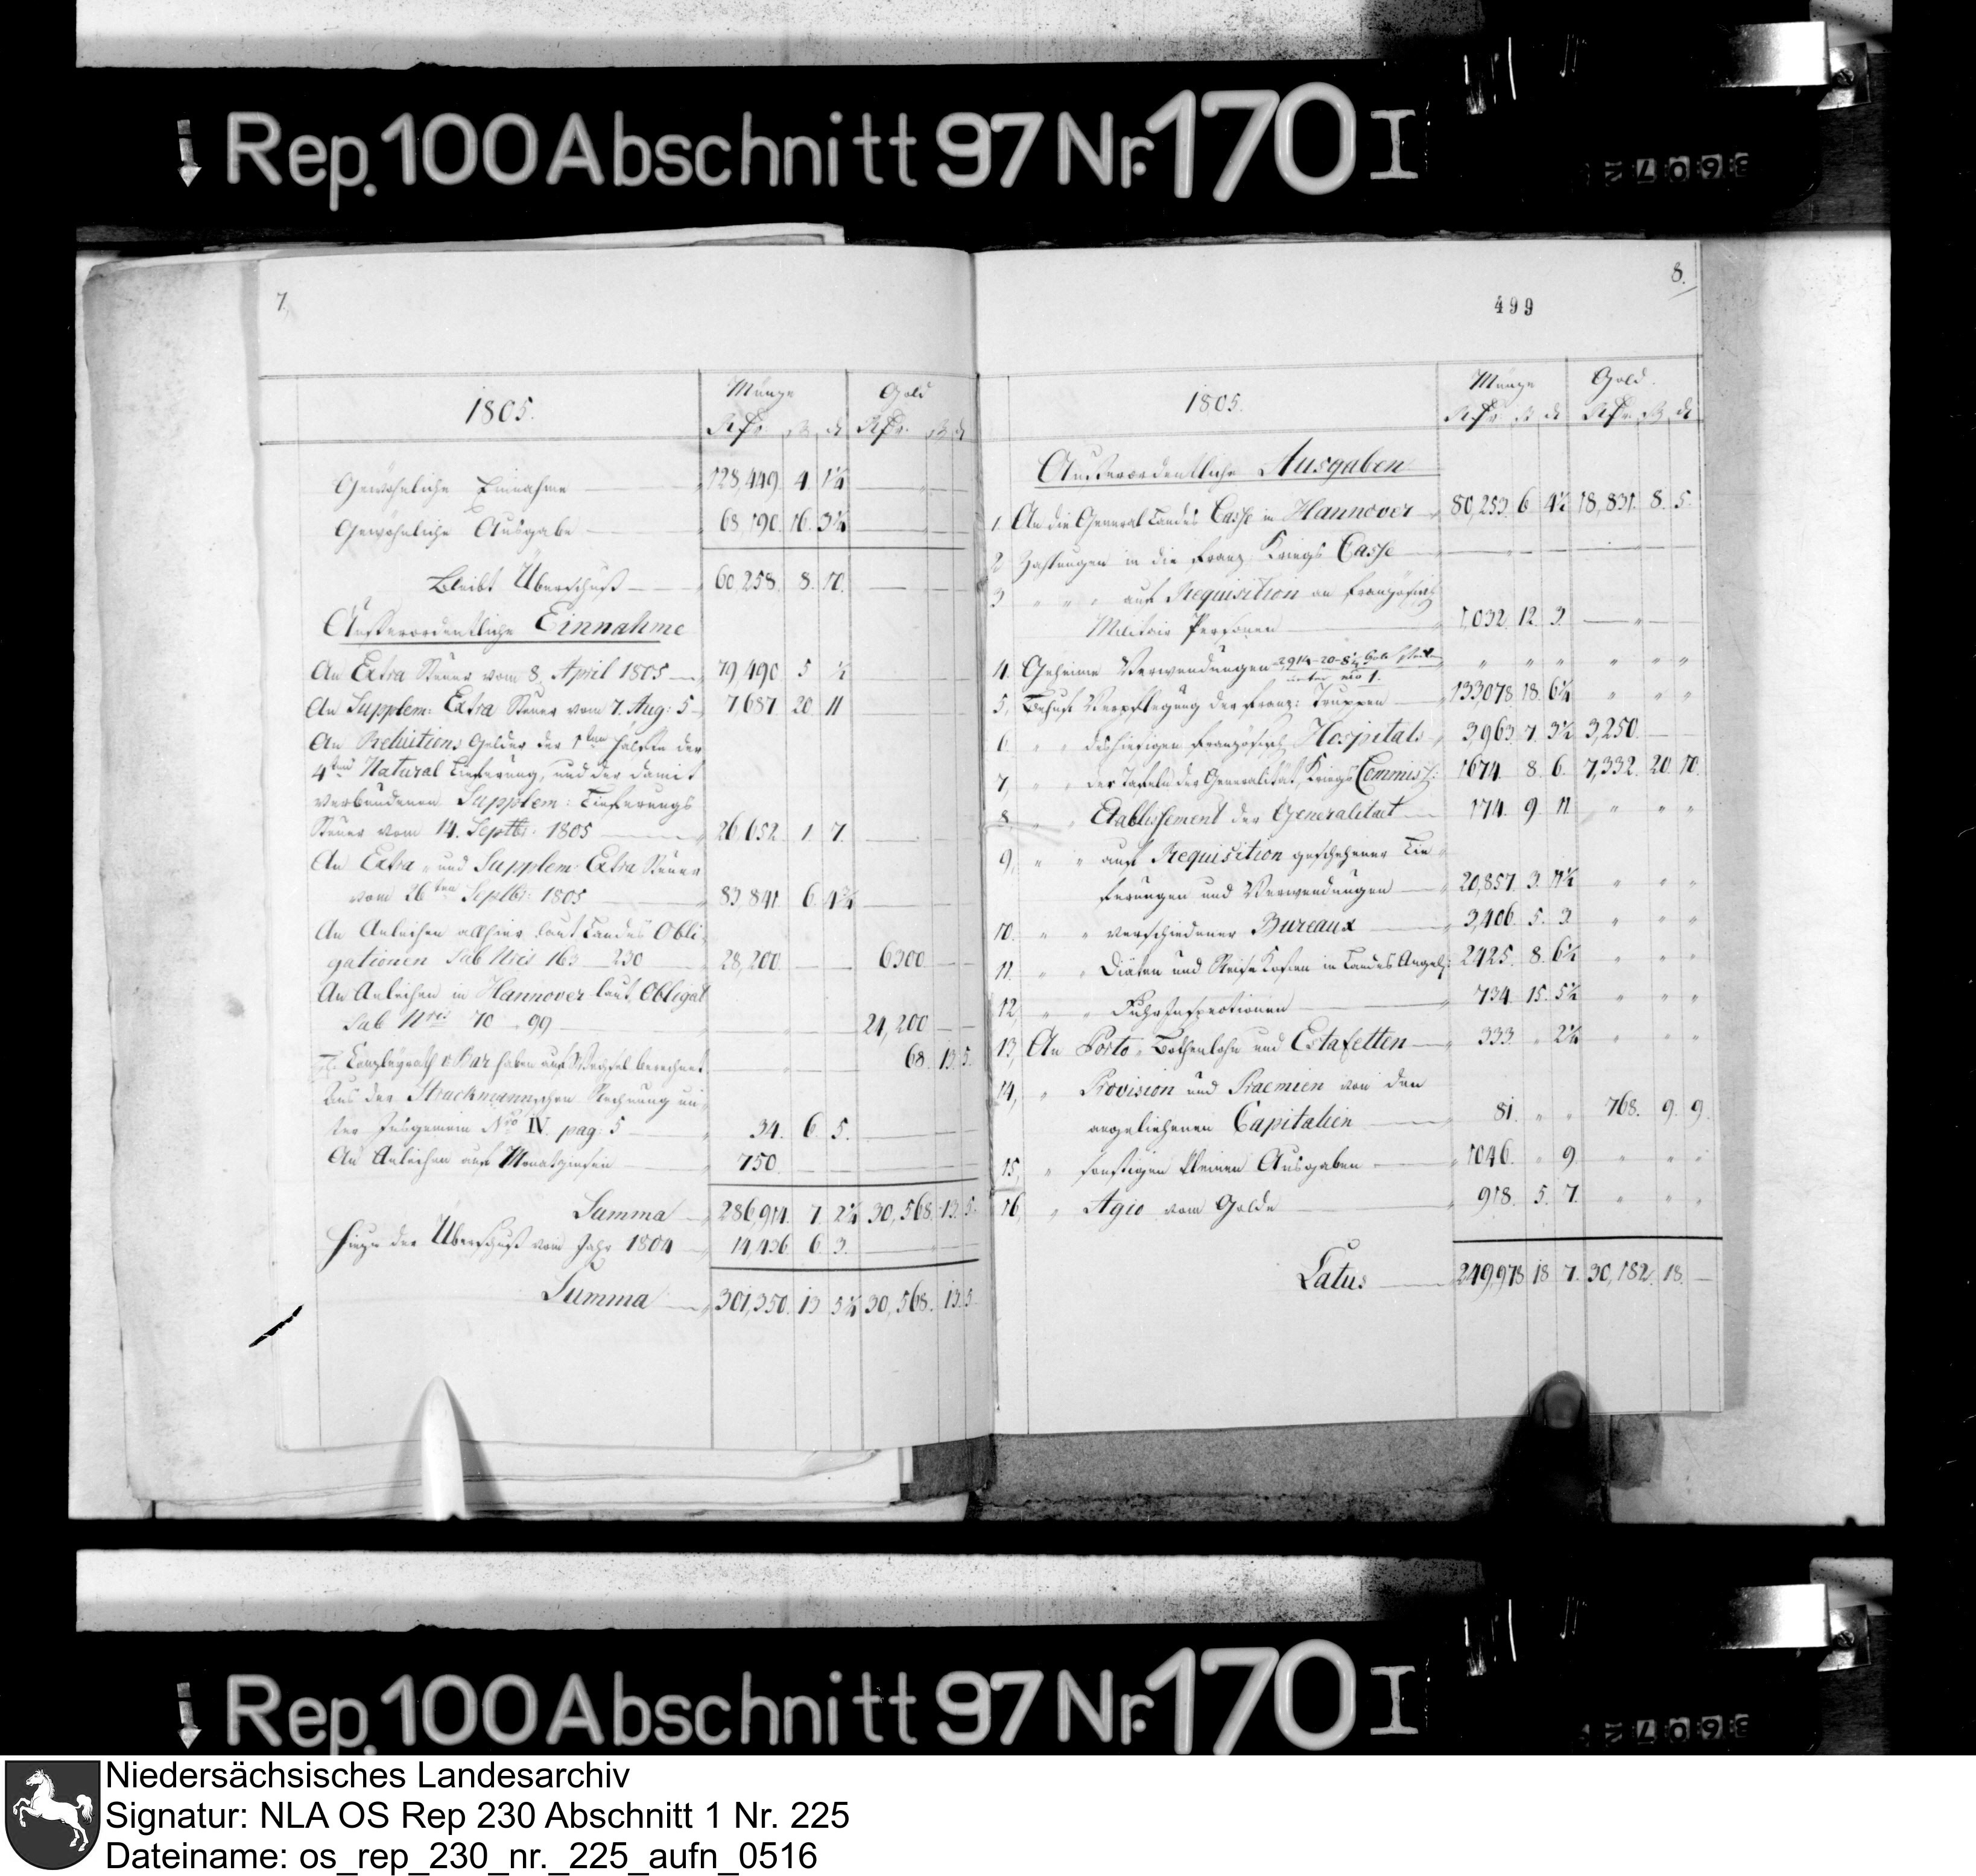 Rep. 100 Abschnitt 97 Nr. 170 I
7.
1805.
Münze Gold
Rthr. ß d Rthr. ß d
Gewöhnliche Einnahme 128,449. 4. 1½
Gewöhnliche Ausgabe 68,190. 16. 3½
Bleibt Überschuß 60,258. 8. 10.
Außerordentliche Einnahme
An Extra Steuer vom 8. April 1805 79,490 5 ½
An Supplem: Extra Steuer vom 7. Aug: 5 7,687 20 11
An Reluitions Gelder der 1ten Hälfte der
4ten Natural Lieferung, und der damit
verbundenen Supplem: Lieferungs
Steuer vom 14. Septbr: 1805 26,652. 1. 7.
An Extra- und Supplem: Extra Steuer
vom 26ten Septbr: 1805 83,841 6
An Anleihen allhier laut Landes Obli-
gationen sub Nris 163 _ 230 28,200. 6300.
An Anleihen in Hannover laut Obligat
sub Nris 70 - 99 24,200
Canzleyrath v. Bar haben auf Wechsel berechnet 68. 13. 5.
Aus der Struckmannschen Rechnung un-
ter Insgemein Nro IV. pag: 5 34. 6. 5.
An Anleihen auf Monatzinsen 750.
Summa 286,914. 7. 2¼ 30,568. 13. 5.
Hiezu der Überschuß vom Jahr 1804 14,436 6 3.
Summa 301,350. 13 5¼ 30,568. 13. 5
8.
499
1805.
Münze Gold.
Rthr. ß d Rthr. ß d
Außerordentliche Ausgaben
1. An die General Landes Casse in Hannover 80,253. 6 4½ 18,831. 8. 5.
2 Zahlungen in die Franz: Kriegs Casse
3 " " " auf Requisition an Französisch
Militair Personen 1,032. 12. 3.
4. Geheime Verwendungen " " " " " "
unter nro 1.
5, Behuf Verpflegung der Franz: Truppen 133,078. 18. 6¼ " " "
6 " " des hiesigen Französisch. Hospitals 3,963. 7. 3½ 3,250.
7, " " der Tafeln der Generalität, Kriegs Commiss: 1674. 8. 6. 7,332. 20. 10.
8. " " Etablissement der Generalitaet 174. 9. 11 " " "
9, " " auf Requisition geschehener Lie-
ferungen und Verwendungen 20,857. 3. 11½ " " "
10. " " verschiedener Bureaux 3,406. 5. 3 " " "
11. " " Diäten und Reise Kosten in Landes Angel: 2425. 8. 6½ " " "
12, " " Fuhr Inspectionen 734. 15. 5½ " " "
13, An Porto, Bothenlohn und Estafetten 333. " 2½ " " "
14, " Provision und Praemien von den
angeliehenen Capitalien 81. " " 768. 9. 9.
15, " sonstigen kleinen Ausgaben 1046. " 9. " " "
16, " Agio vom Golde 918. 5. 7. " " "
Latus 249,978 18 7. 30,182. 18. —
Rep. 100 Abschnitt 97 Nr. 170 I
Niedersächsisches Landesarchiv
Signatur: NLA OS Rep 230 Abschnitt 1 Nr. 225
Dateiname: os_rep_230_nr._225_aufn_0516